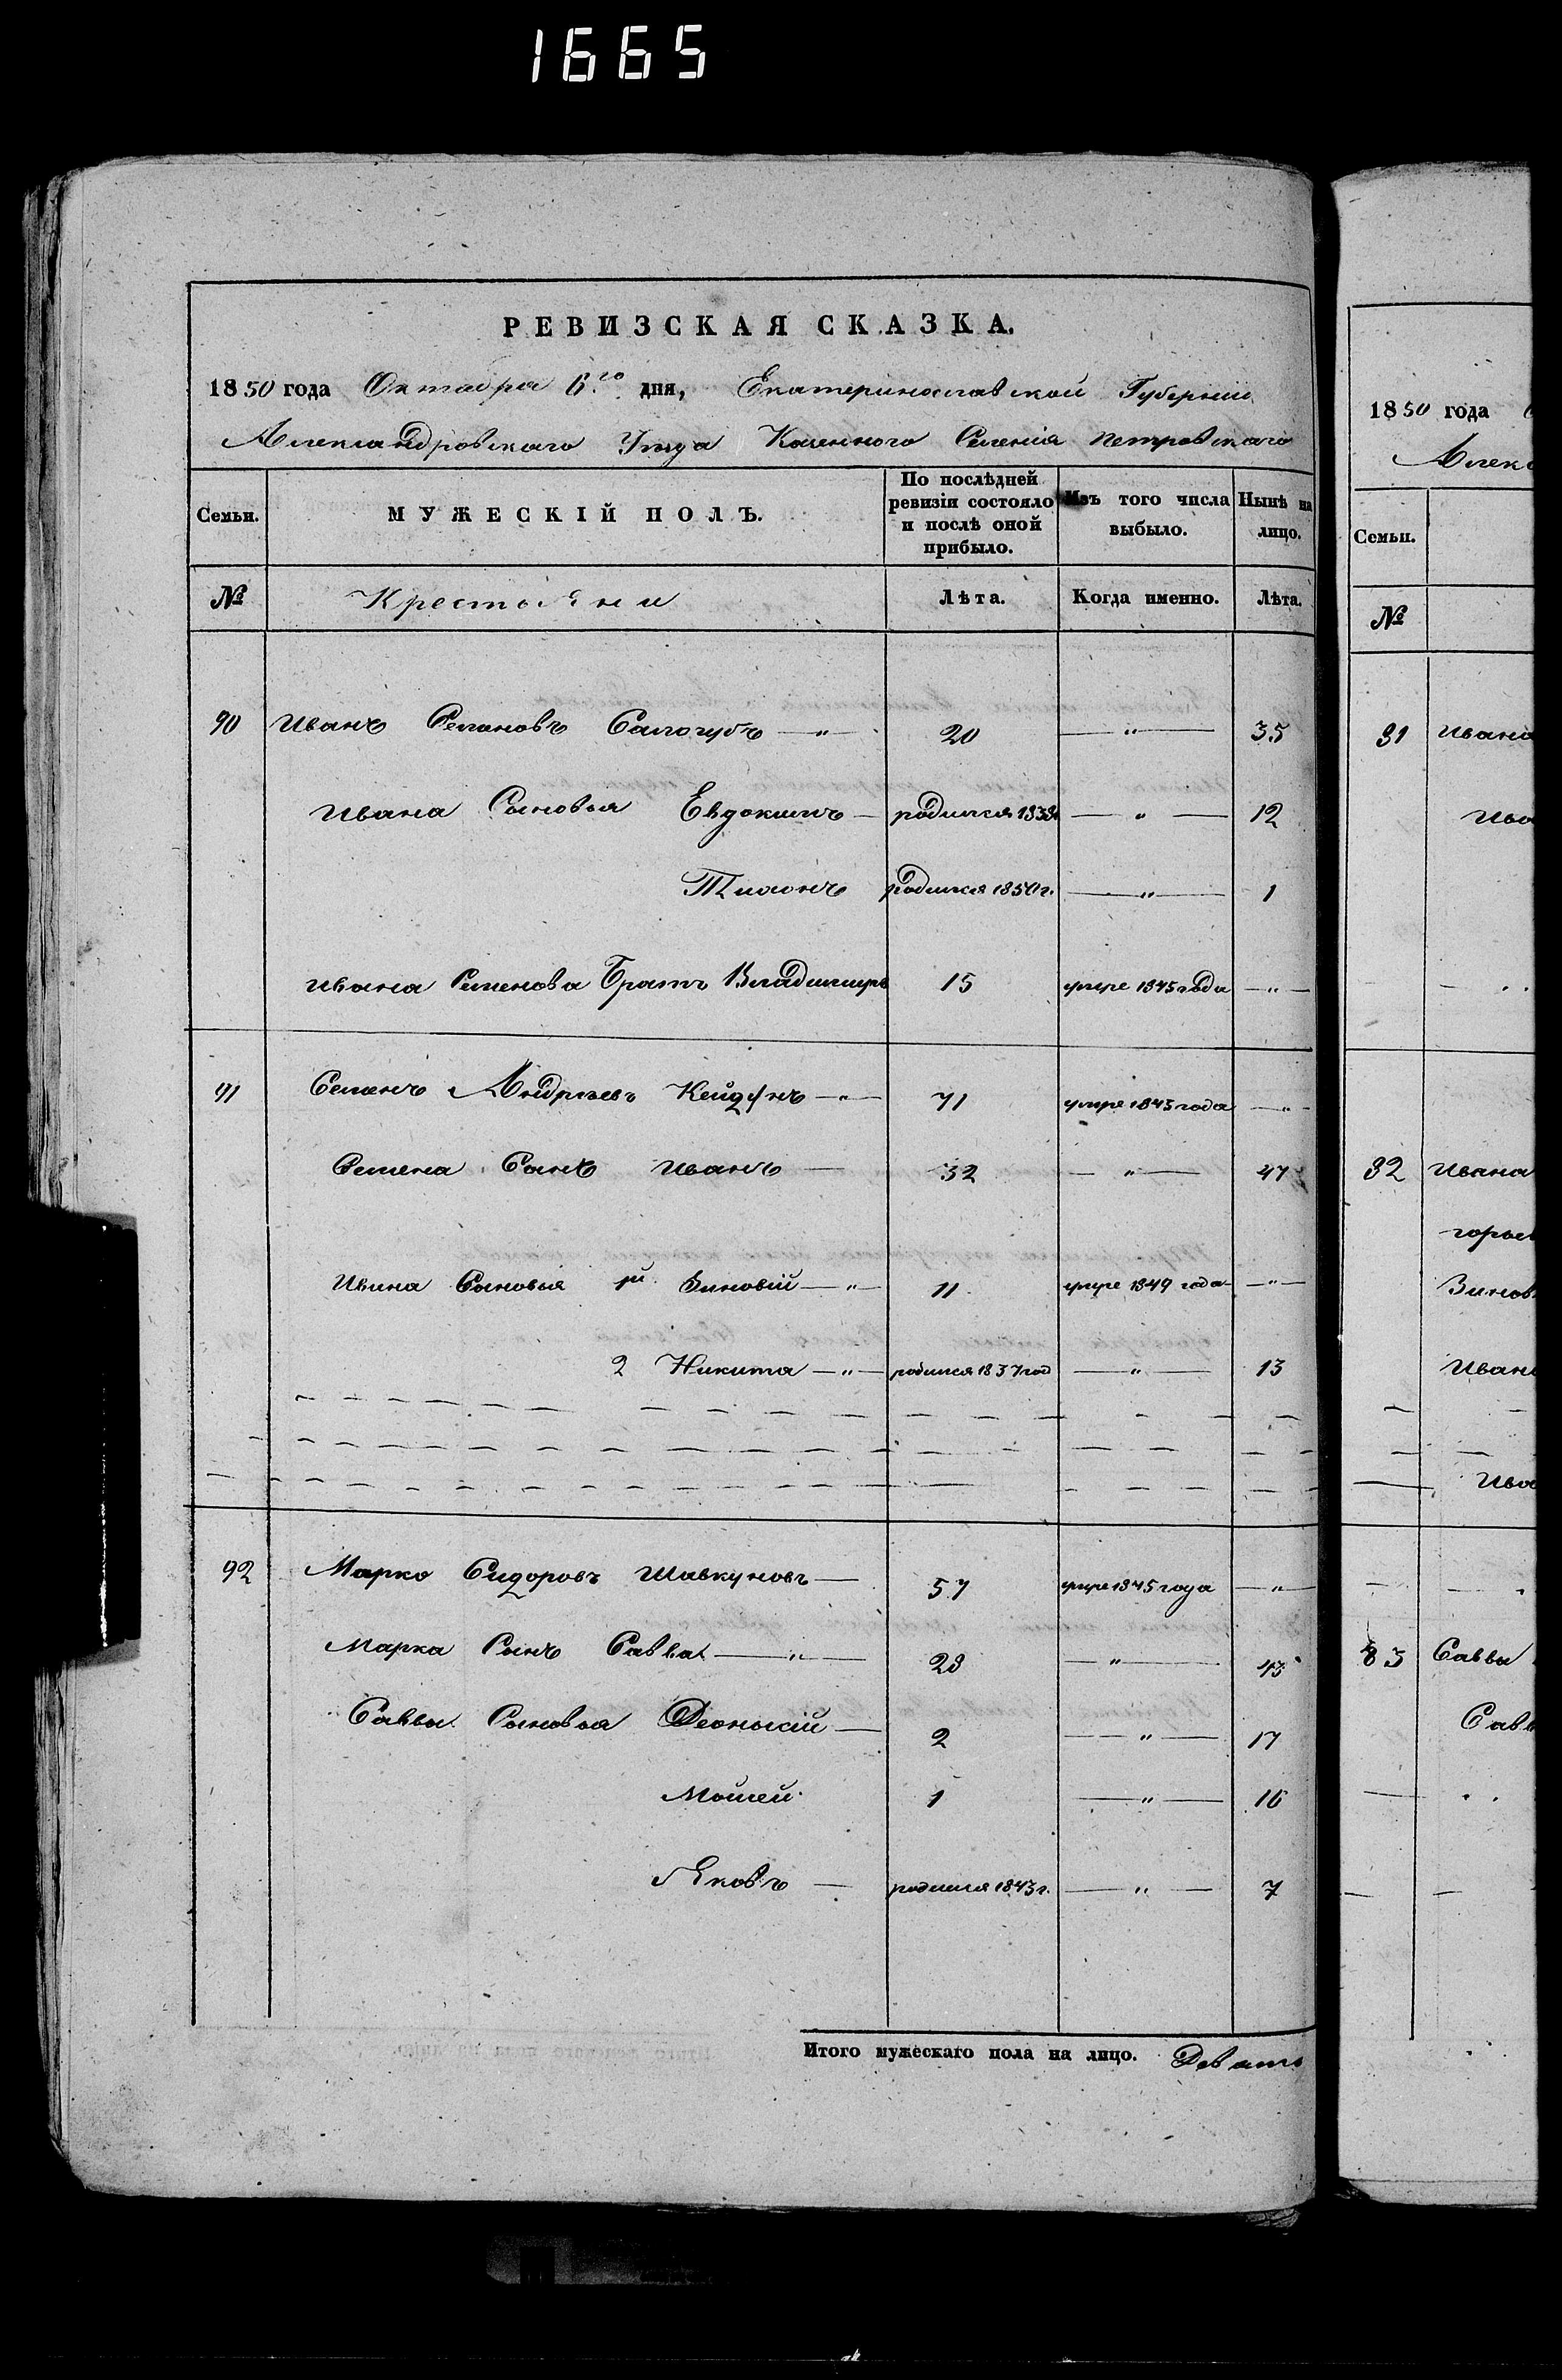 1665
РЕВИЗСКАЯ СКАЗКА.
1850 года Октабра 6.го дня, Екатеринославской Губерніи
Александровскаго Уезда Казенного Селенія Петровскаго
Семьи. МУЖЕСКІЙ ПОЛЪ. По послѣдней ревизіи состояло и послѣ оной прибыло. Изъ того числа выбыло. Нынѣ на лицо.
№ Крестьяни Лѣта. Когда именно. Лѣта.
90 Иванъ Семановъ Салогубъ — " — 20 — " — 35
Ивана Сыновья Евдокимъ — родился 1838 — " — 12
Тихонъ родился 1850 г. — " — 1
Ивана Семенова Братъ Владимиръ 15 умре 1845 года — " —
91 Семенъ Андреевъ Кейдунъ — " — 71 умре 1843 года — " —
Семена Сынъ Иванъ — 32 — " — 47
Ивана Сыновья 1й Зиновій — " — 11 умре 1849 года — " —
2 Никита — " — родился 1837 год — " — 13
92 Марко Сидоровъ Шавкуновъ — 57 умре 1845 года — " —
Марка Сынъ Савва — " — 28 — " — 43
Саввы Сыновья Деонысій — 2 — " — 17
Мойсей 1 — " — 16
Яковъ — родился 1843 г. — " — 7
Итого мужескаго пола на лицо. Девать
1850 года
Алекс
Семьи.
№
31 Ивана
Ива
32 Ивана
горьев
Зинов
Ивана
Ива
83 Саввы
Савв